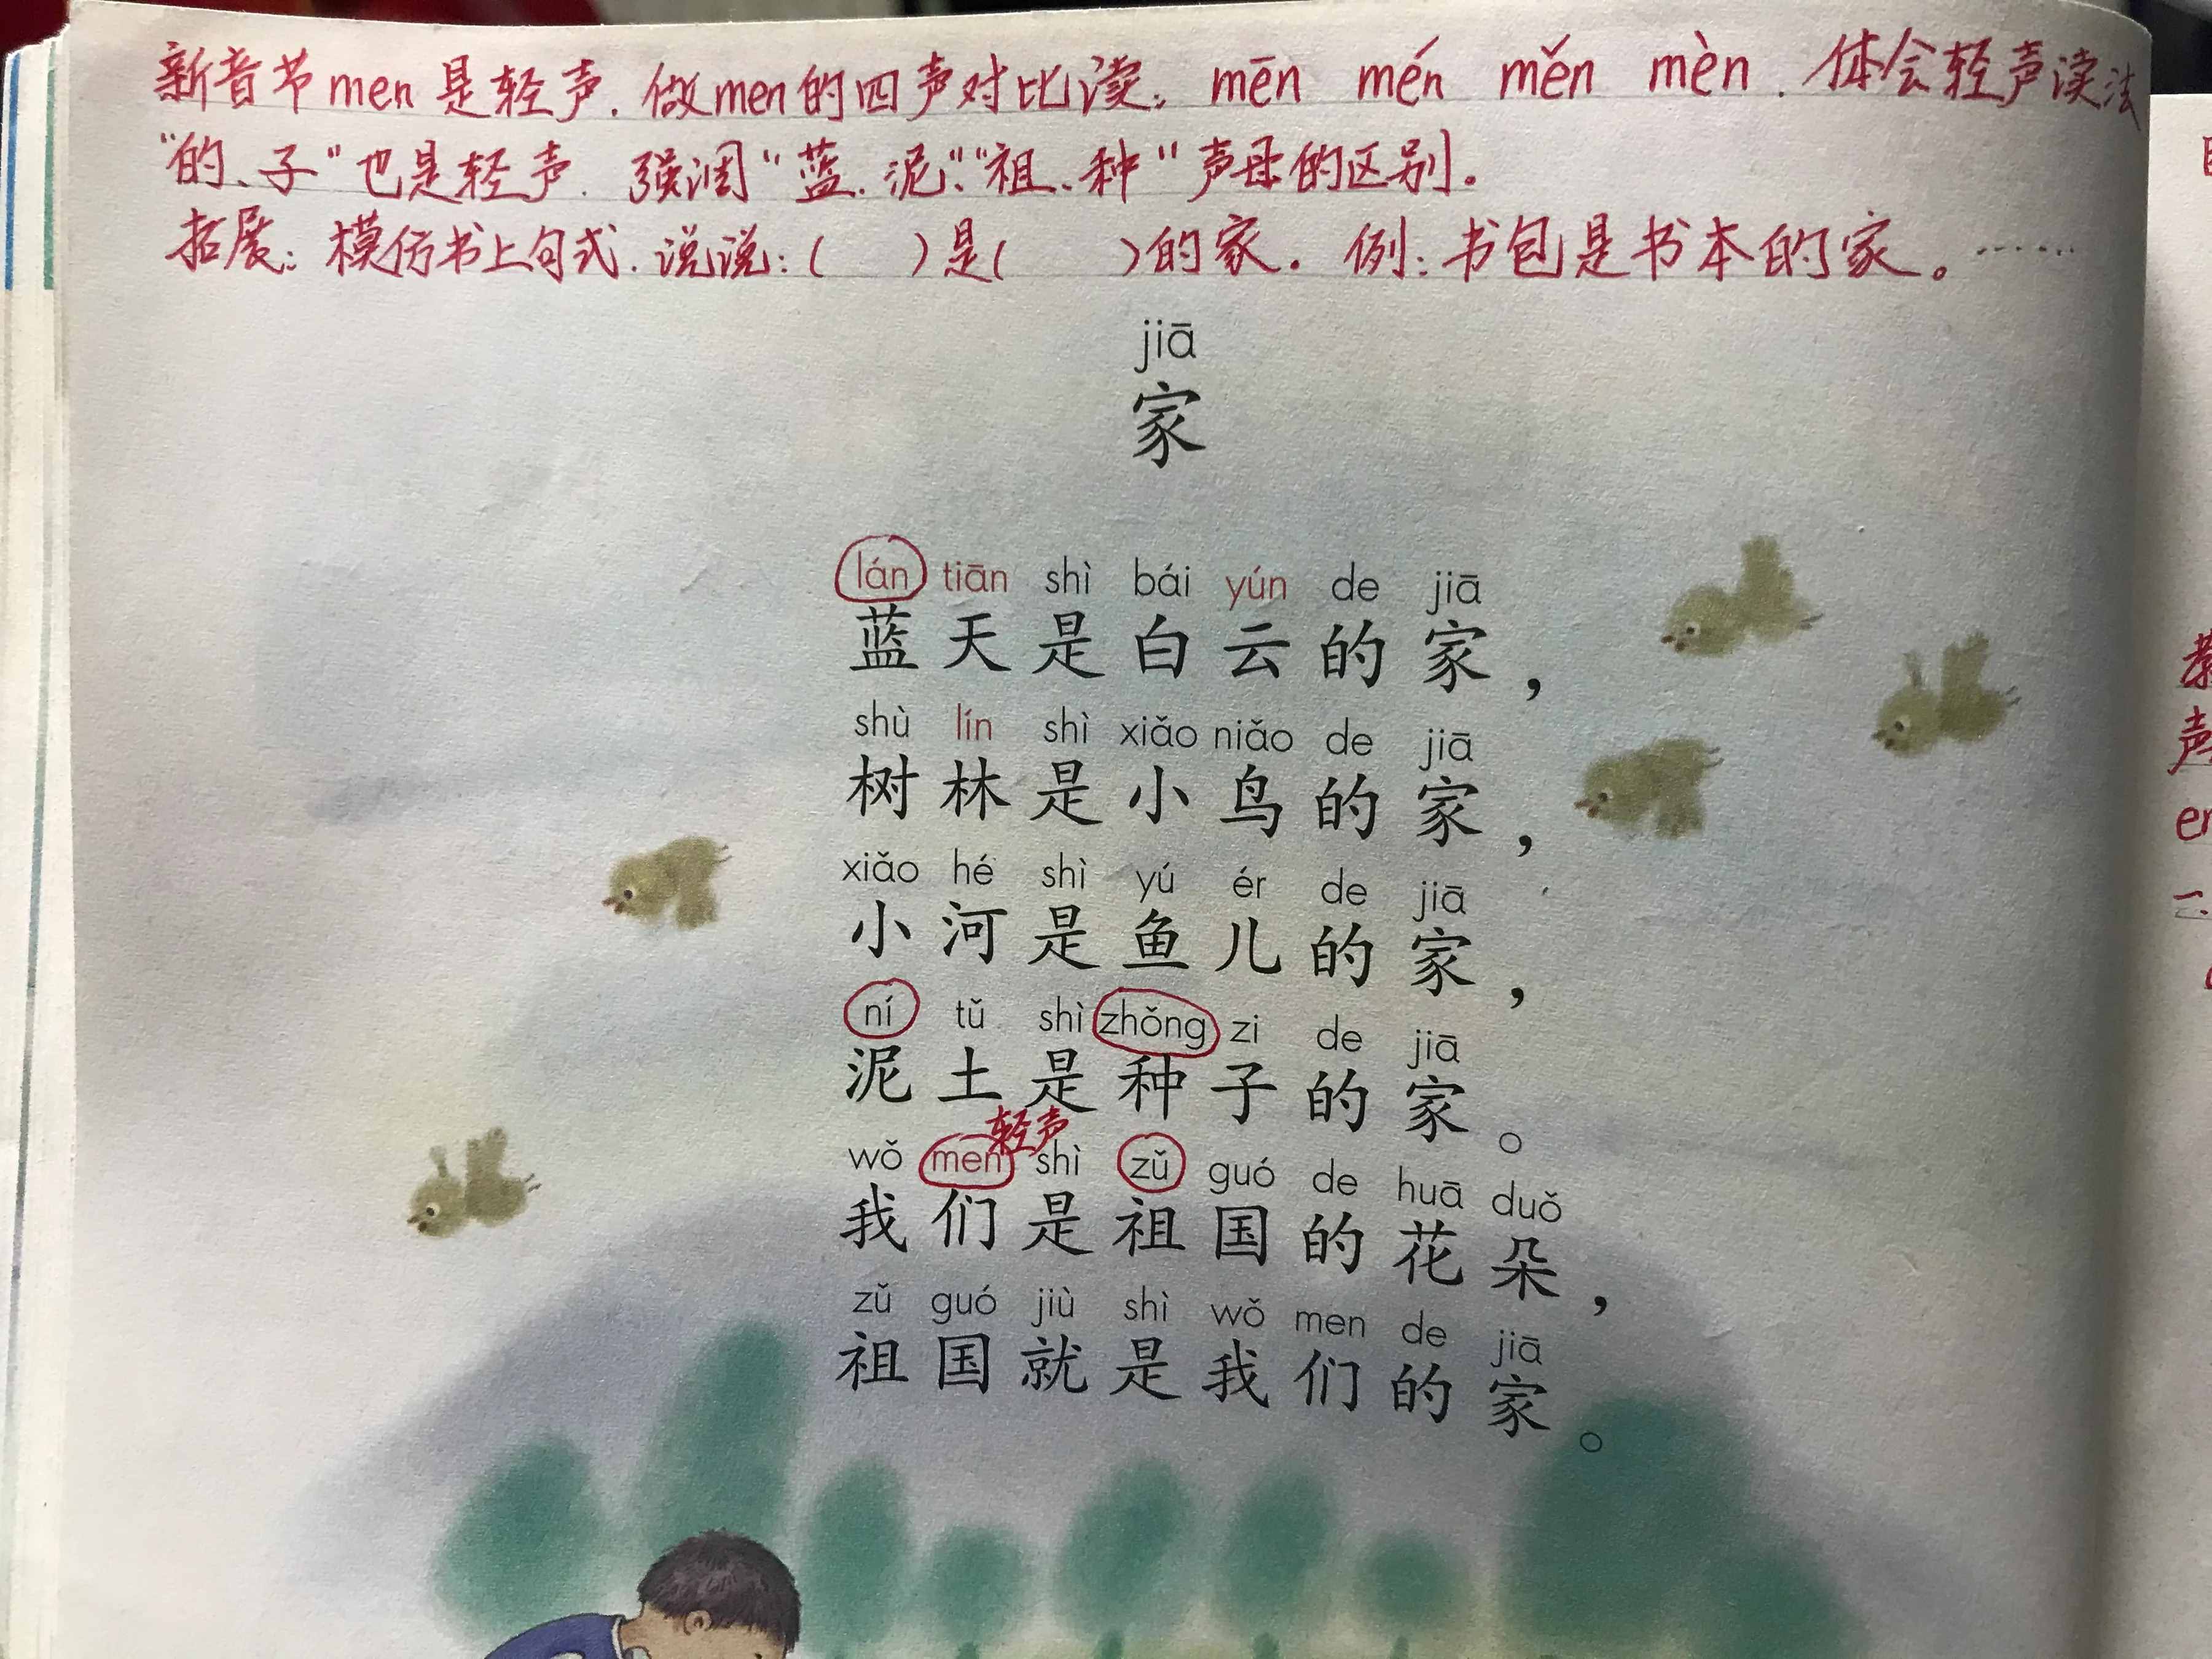 新音节men是轻声.做men的四声对比读: mēn mén měn mèn.体会轻声读法
“的、子”也是轻声.强调“蓝.泥”“祖、种”声母的区别。
拓展:模仿书上句式.说说:( )是( )的家。例:书包是书本的家。……
jiā
家
lán tiān shì bái yún de jiā
蓝天是白云的家，
shù lín shì xiǎo niǎo de jiā
树林是小鸟的家，
xiǎo hé shì yú ér de jiā
小河是鱼儿的家，
ní tǔ shì zhǒng zi de jiā
泥土是种子的家。
轻声
wǒ men shì zǔ guó de huā duǒ
我们是祖国的花朵，
zǔ guó jiù shì wǒ men de jiā
祖国就是我们的家。